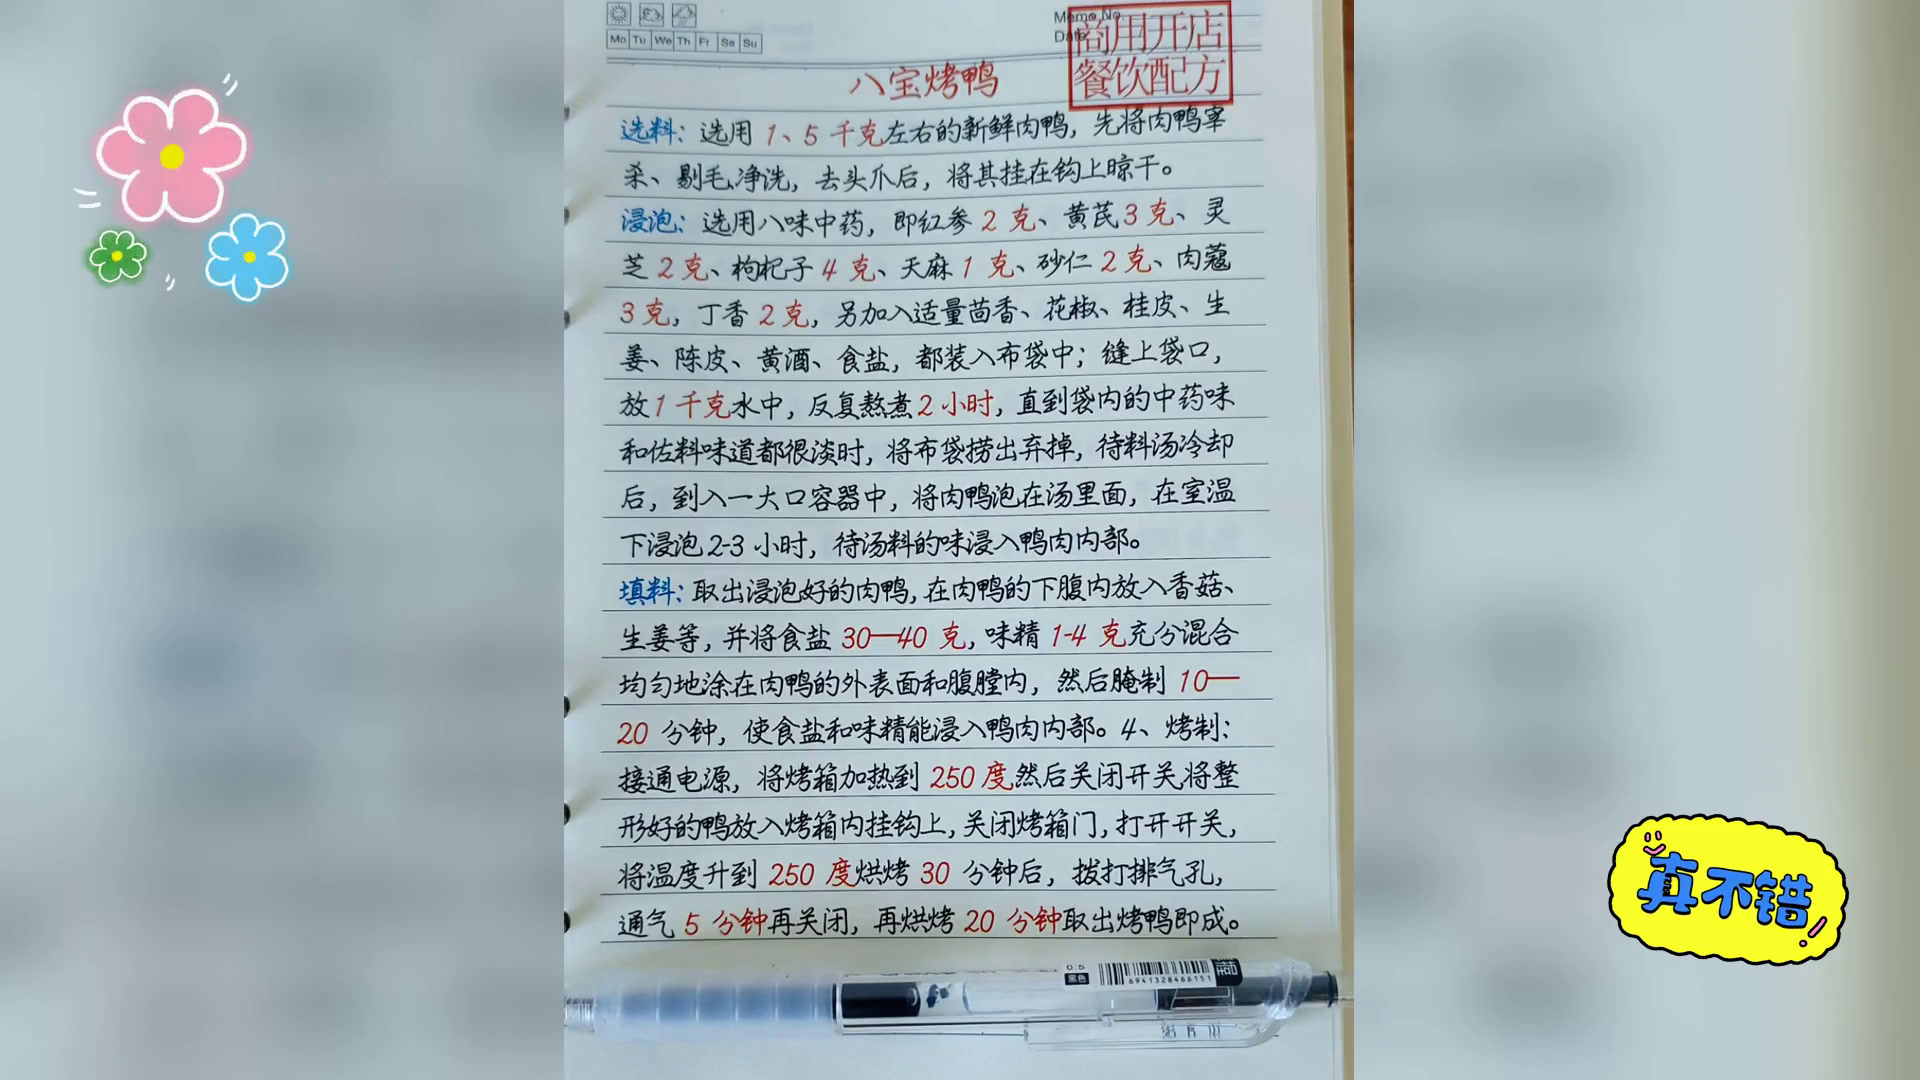 Memo No
Date
Mo Tu We Th Fr Sa Su
商用开店
餐饮配方
八宝烤鸭
选料：选用 1、5 千克左右的新鲜肉鸭，先将肉鸭宰
杀、剔毛净洗，去头爪后，将其挂在钩上晾干。
浸泡：选用八味中药，即红参 2 克、黄芪 3 克、灵
芝 2 克、枸杞子 4 克、天麻 1 克、砂仁 2 克、肉蔻
3 克，丁香 2 克，另加入适量茴香、花椒、桂皮、生
姜、陈皮、黄酒、食盐，都装入布袋中；缝上袋口，
放 1 千克水中，反复熬煮 2 小时，直到袋内的中药味
和佐料味道都很淡时，将布袋捞出弃掉，待料汤冷却
后，到入一大口容器中，将肉鸭泡在汤里面，在室温
下浸泡 2-3 小时，待汤料的味浸入鸭肉内部。
填料：取出浸泡好的肉鸭，在肉鸭的下腹内放入香菇、
生姜等，并将食盐 30—40 克，味精 1-4 克充分混合
均匀地涂在肉鸭的外表面和腹膛内，然后腌制 10—
20 分钟，使食盐和味精能浸入鸭肉内部。4、烤制：
接通电源，将烤箱加热到 250 度然后关闭开关将整
形好的鸭放入烤箱内挂钩上，关闭烤箱门，打开开关，
将温度升到 250 度烘烤 30 分钟后，拨打排气孔，
通气 5 分钟再关闭，再烘烤 20 分钟取出烤鸭即成。
真不错!
0.5
黑色
6941328466151